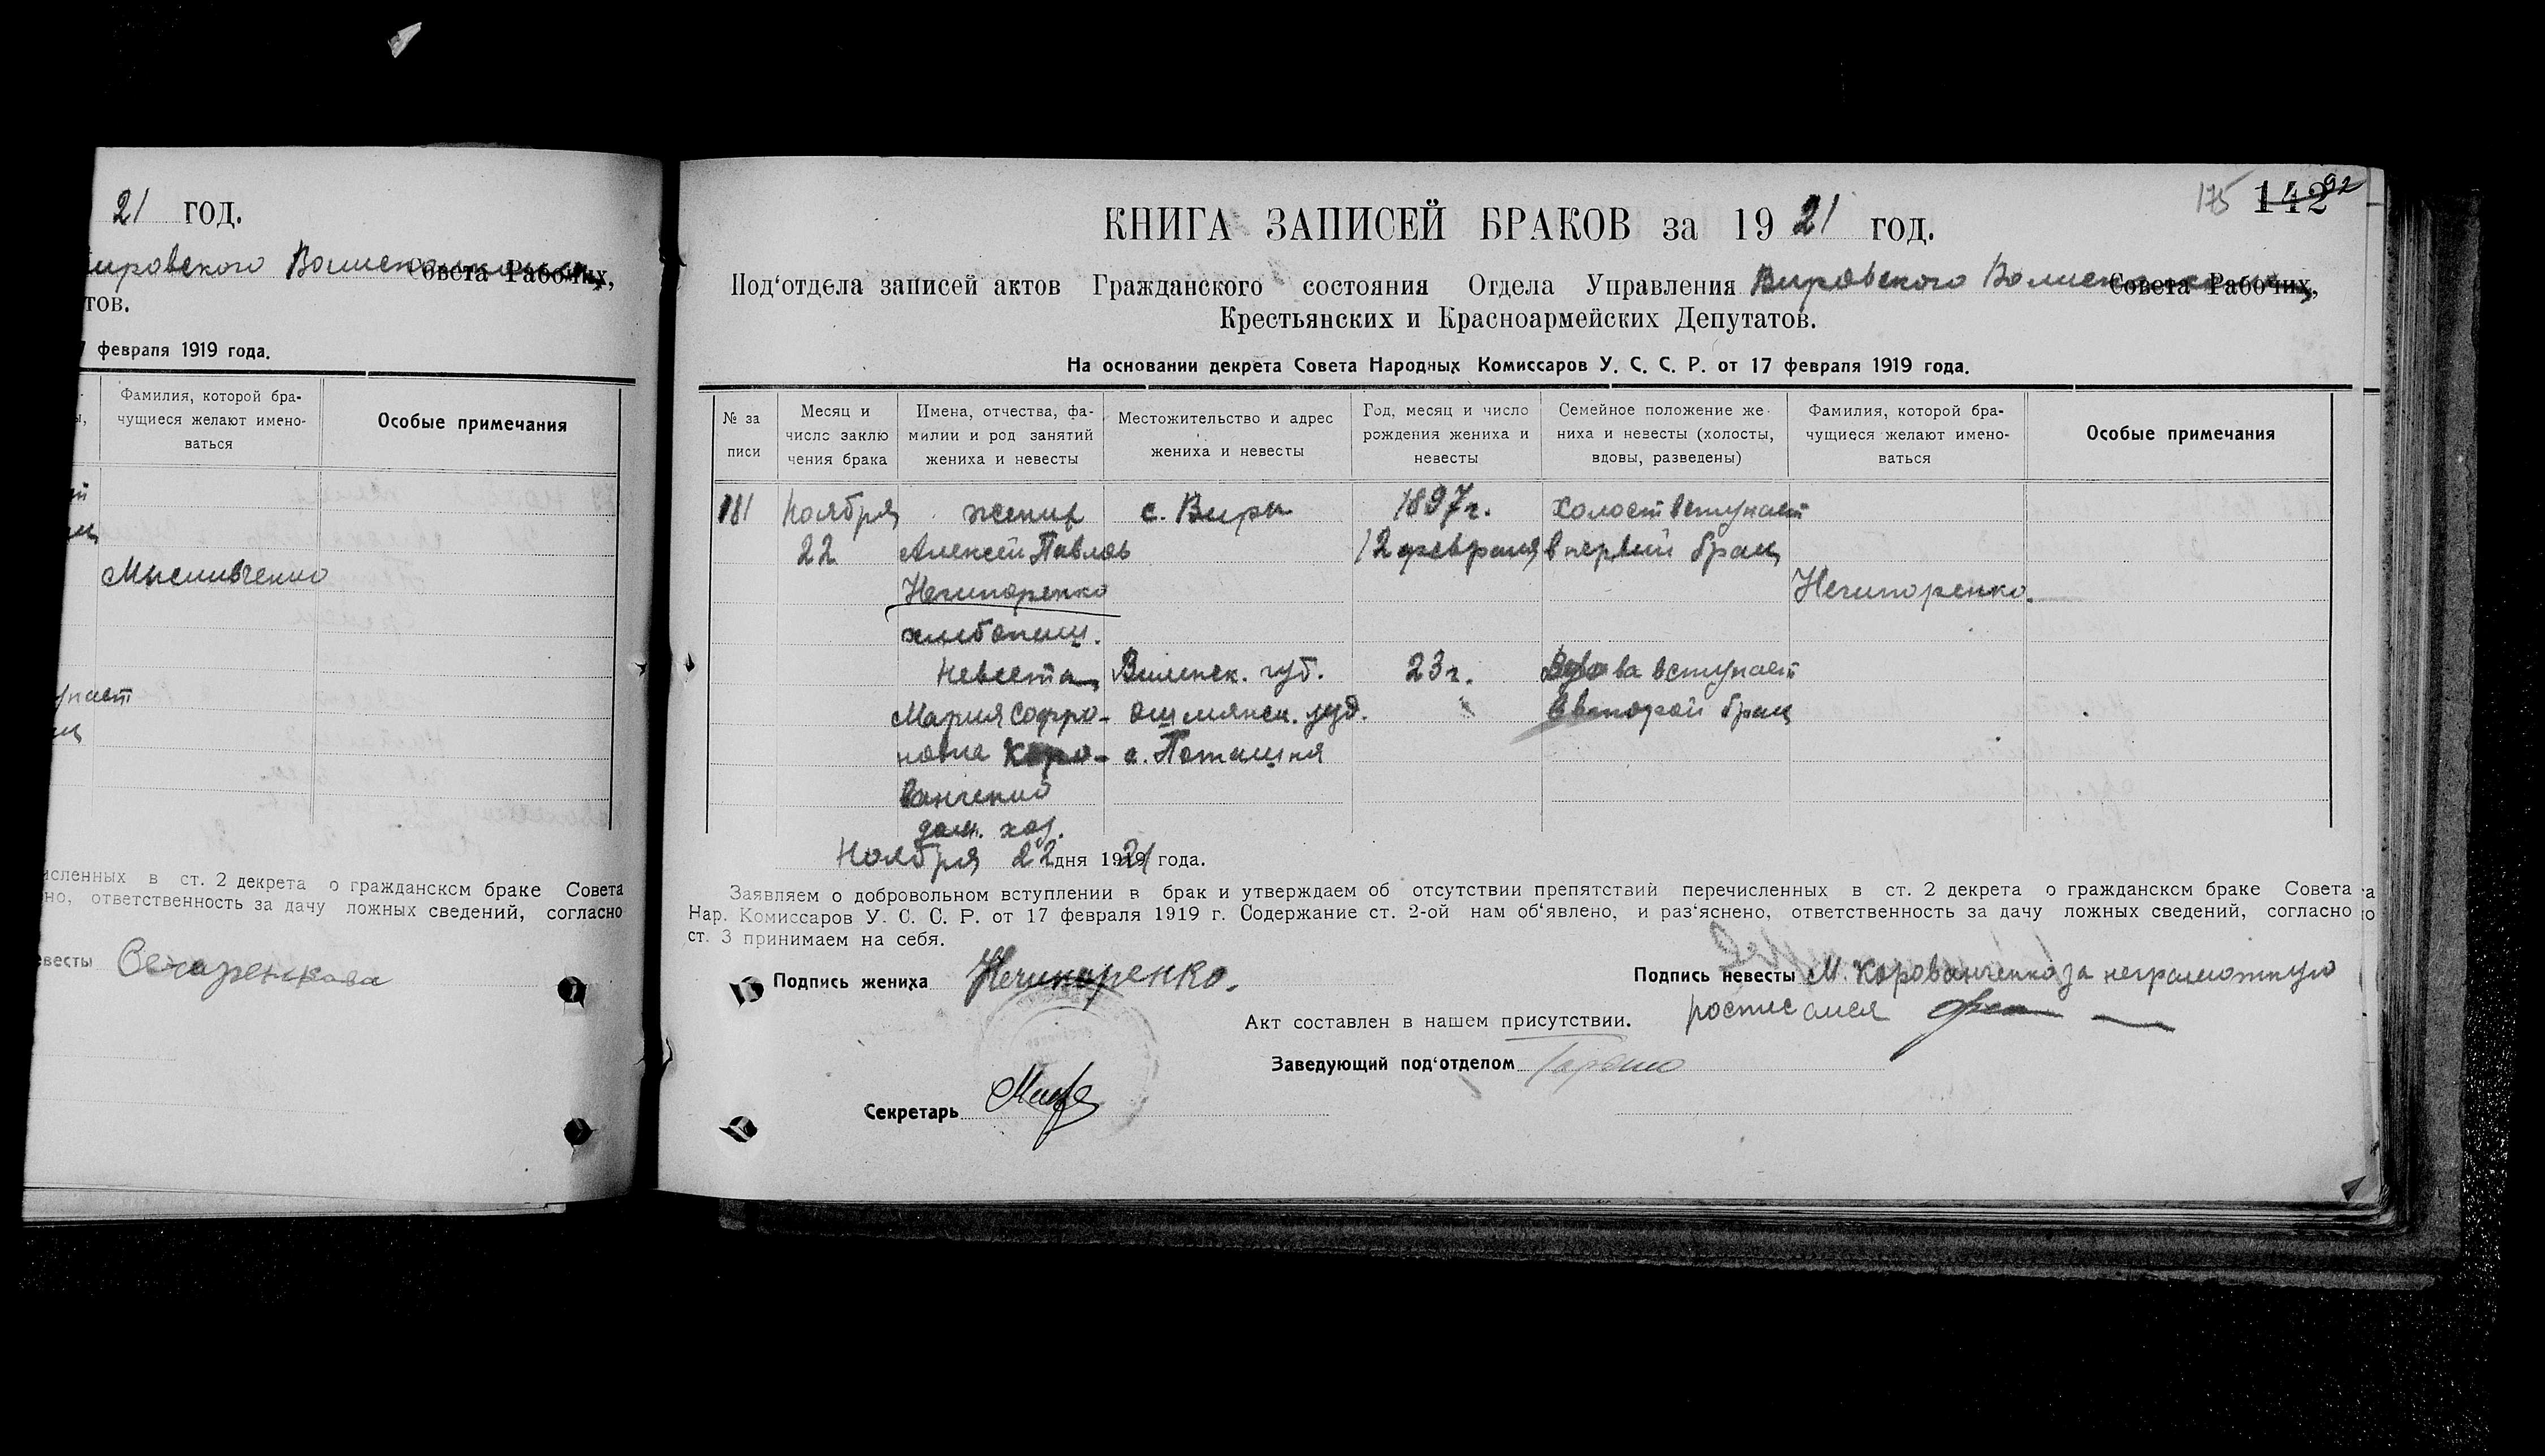 21 год.
ировского Волисполкома Совета Рабочих,
тов.
февраля 1919 года.
Фамилия, которой бра-
чущиеся желают имено-
ваться
Особые примечания
Мысливченко
упает
исленных в ст. 2 декрета о гражданскем браке Совета
но, ответственность за дачу ложных сведений, согласно
евесты Овчаренкова
175 142 92
КНИГА ЗАПИСЕЙ БРАКОВ за 1921 год.
Под‘отдела записей актов Гражданского состояния Отдела Управления Вировского Волисполкома Совета Рабочих,
Крестьянских и Красноармейских Депутатов.
На основании декрета Совета Народных Комиссаров У. С. С. Р. от 17 февраля 1919 года.
№ за
писи
Месяц и
число заклю
чения брака
Имена, отчества, фа-
милии и род занятий
жениха и невесты
Местожительство и адрес
жениха и невесты
Год, месяц и число
рождения жениха и
невесты
Семейное положение же-
ниха и невесты (холосты,
вдовы, разведены)
Фамилия, которой бра-
чущиеся желают имено-
ваться
Особые примечания
181 Ноября жених с. Виры 1897 г. Холост вступает
22 Алексей Павлов 12 февраля в первый брак
Нечипоренко Нечипоренко.
хлебопаш.
Невеста Виленск. губ. 23 г. Вдова вступает
Мария Софро- Ошмянск. уезд. в второй брак
новна Коро- с. Поташня
ванченко
дом. хоз.
Ноября 22 дня 1921 года.
Заявляем о добровольном вступлении в брак и утверждаем об отсутствии препятствий перечисленных в ст. 2 декрета о гражданскем браке Совета
Нар. Комиссаров У. С. С. Р. от 17 февраля 1919 г. Содержание ст. 2-ой нам об‘явлено, и раз‘яснено, ответственность за дачу ложных сведений, согласно
ст. 3 принимаем на себя.
Подпись жениха Нечипоренко.
Подпись невесты М. Корованченко за неграмотную
росписался
Акт составлен в нашем присутствии.
Заведующий под‘отделом
Секретарь